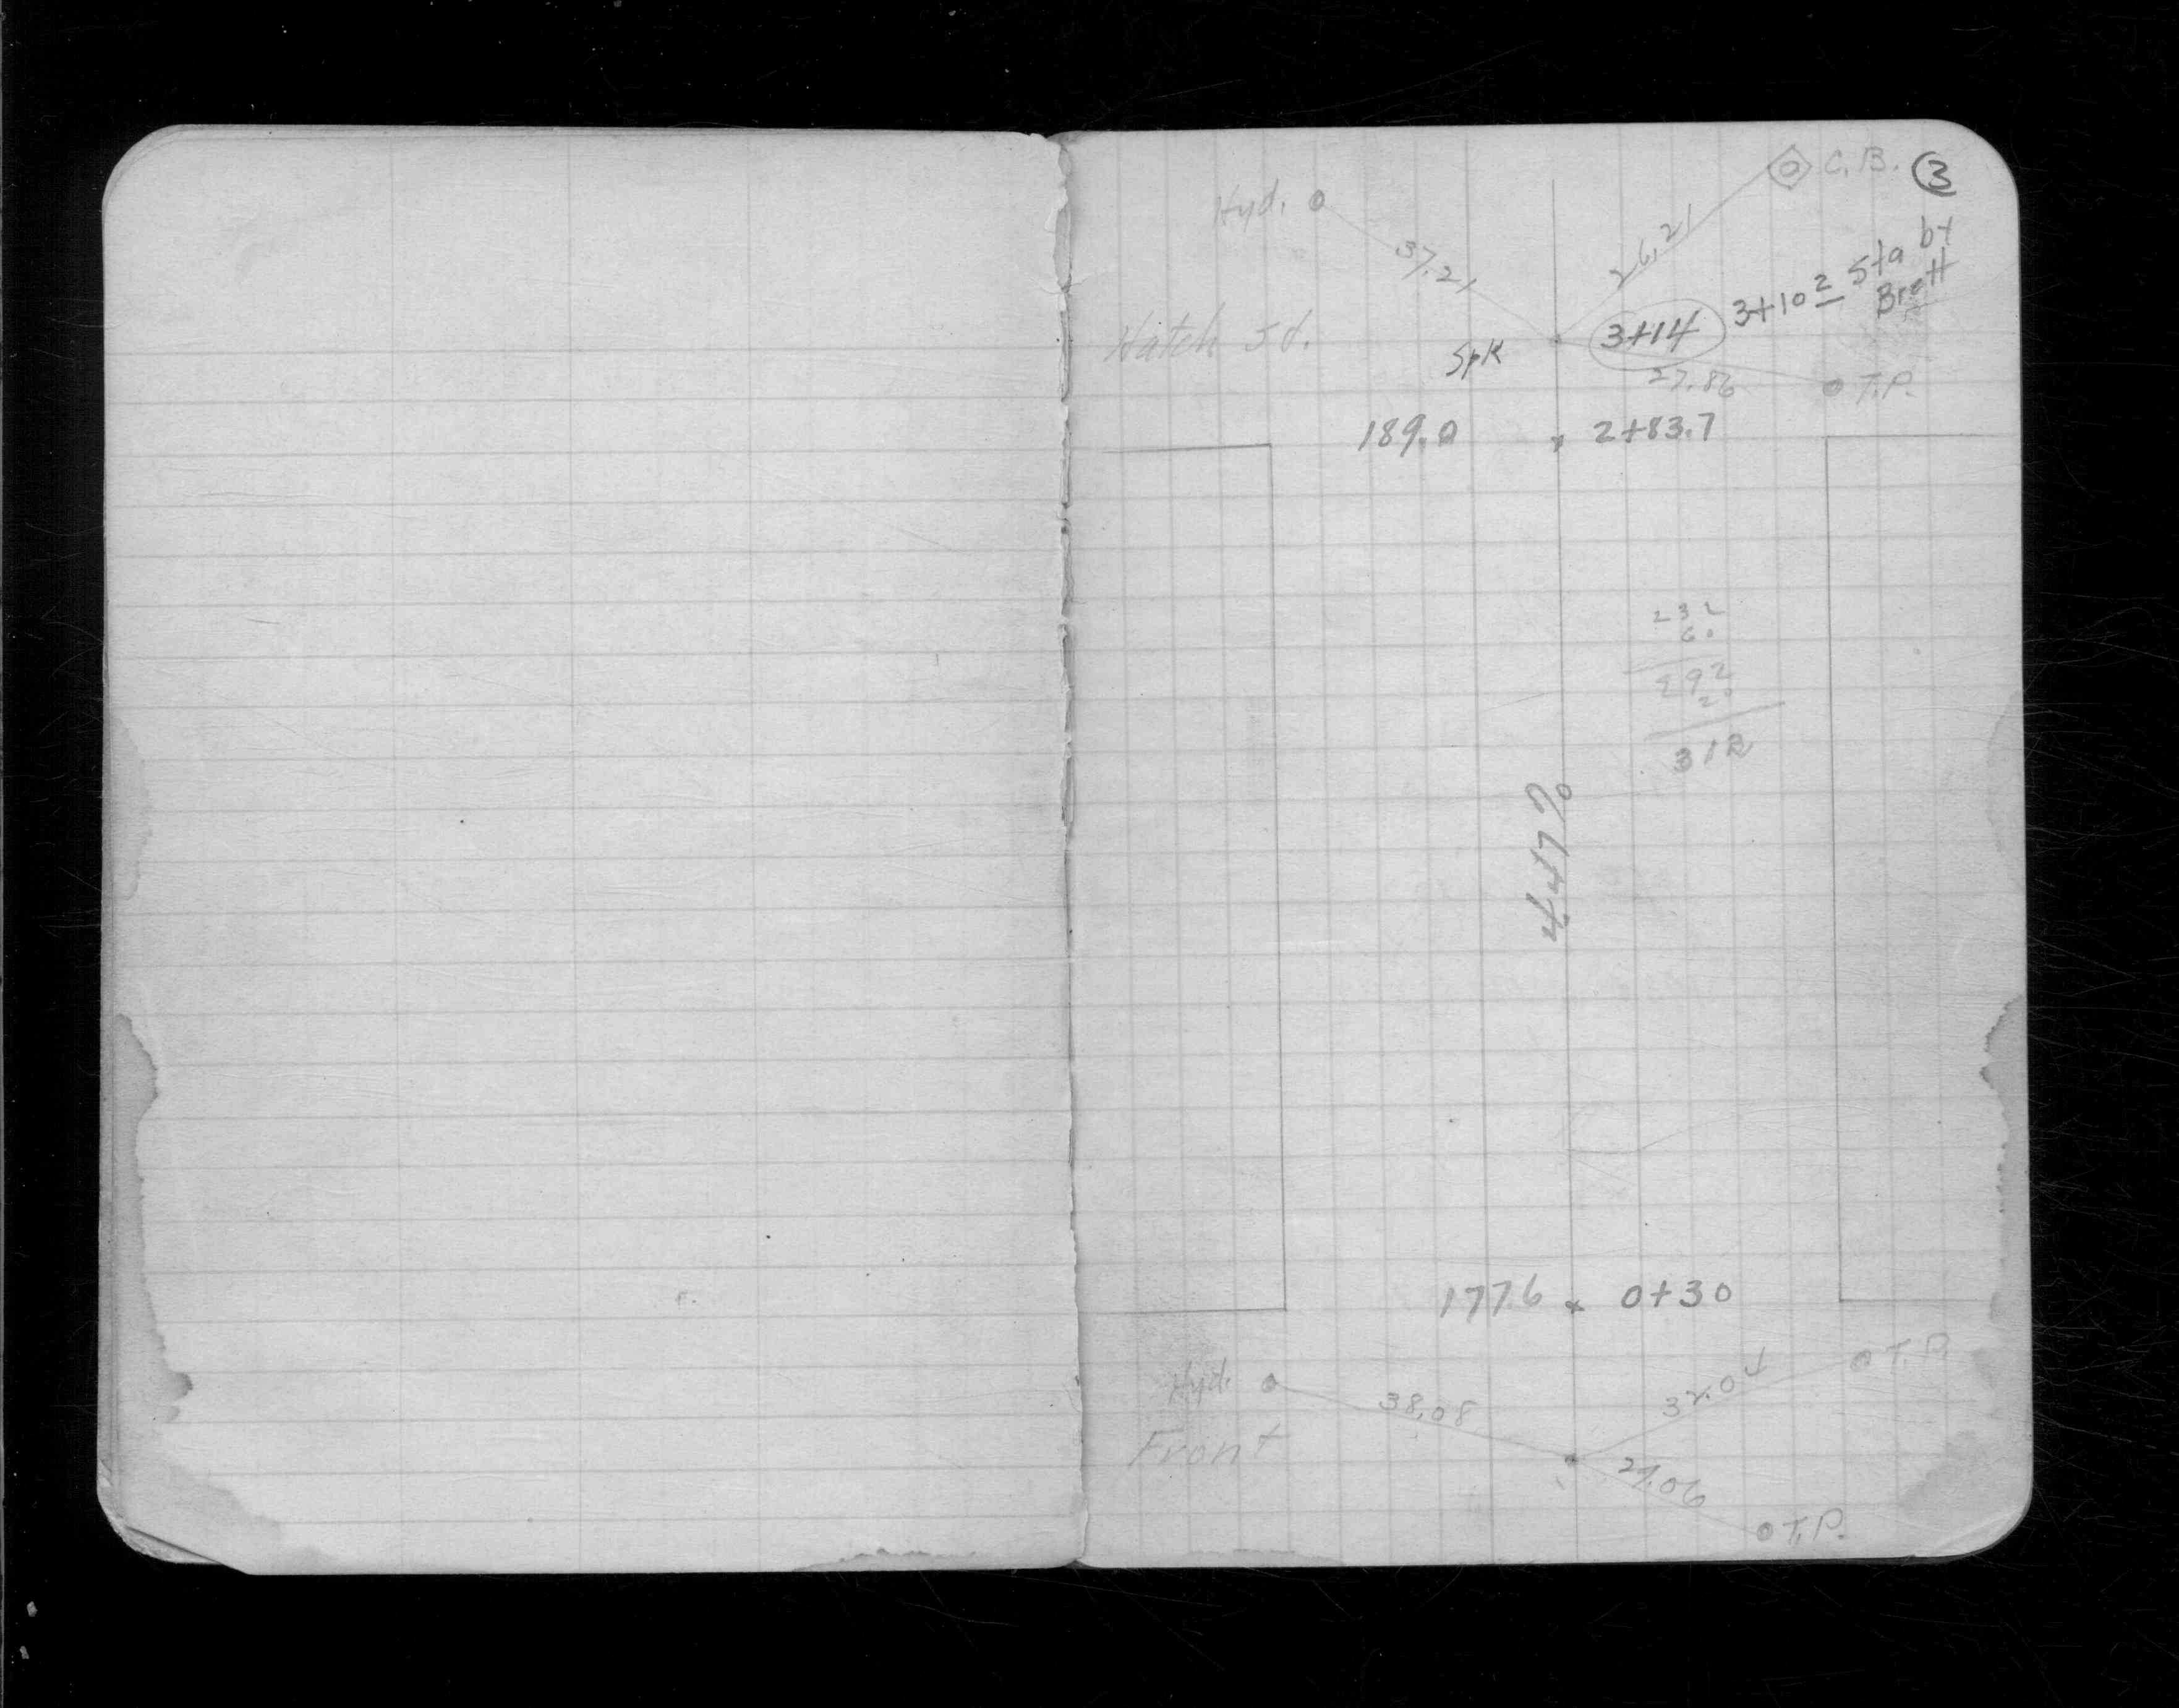 Hyd. C.B. 3
37.21 26.21
3+10 2 Sta by
Brett
Hatch St.
Spk 3+14
27.86 T.P.
189.0 2+83.7
232
60
292
20
312
4.47%
177.6 0+30
Hyd. T.P.
38.08 32.04
Front
27.06
T.P.